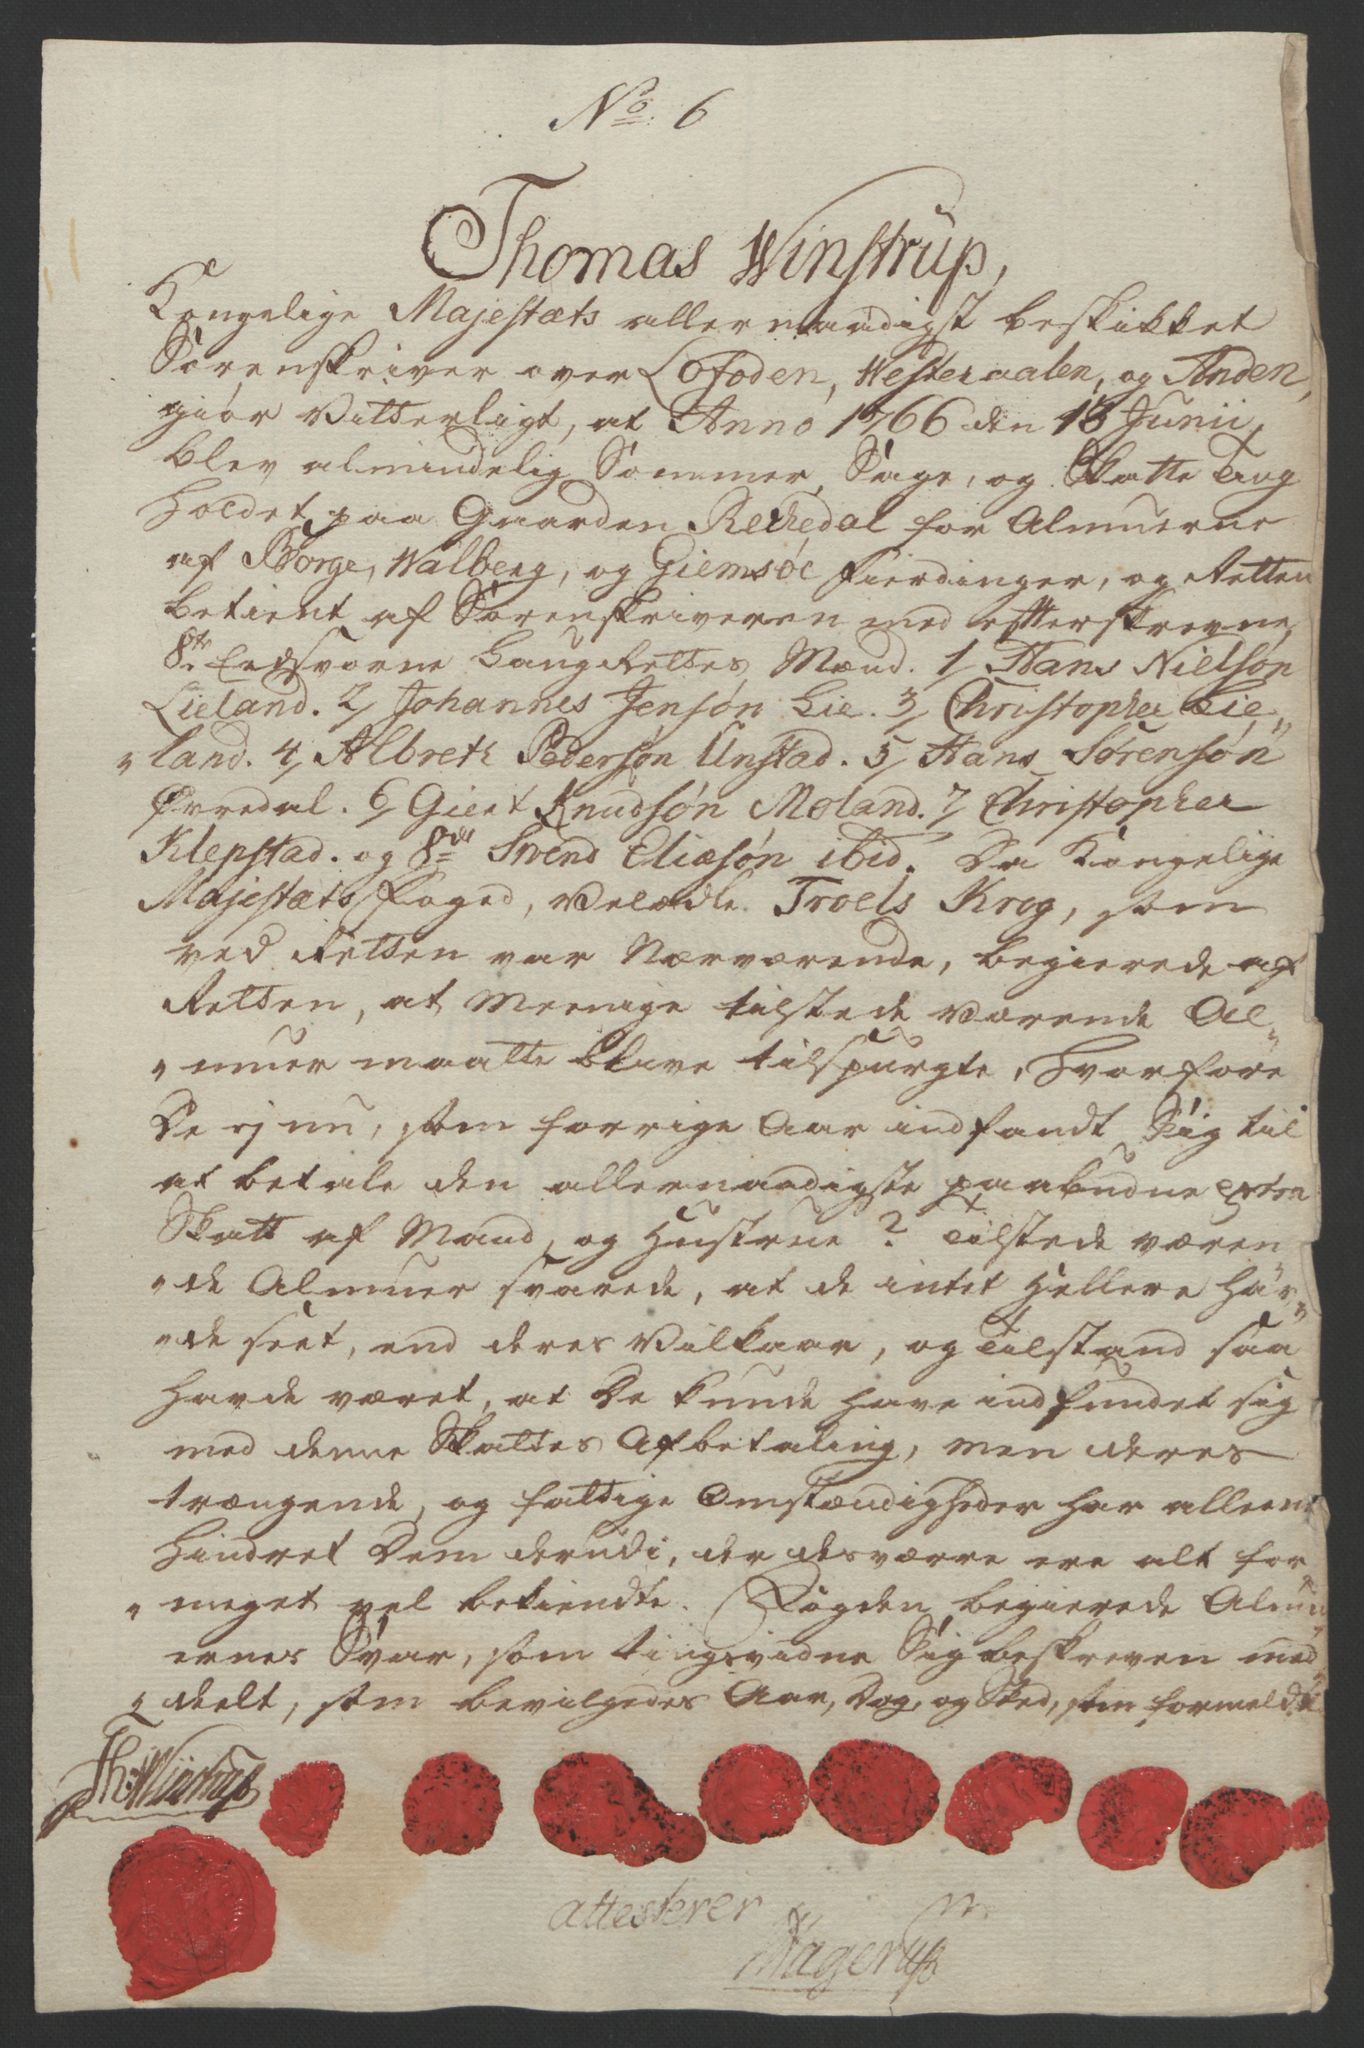 No. 6
Thomas Winstrup,
Kongelige Majestæts allernaadigst beskikket
Sorenskriver over Lofoden, Westeraalen, og Anden,
giör Vitterligt, at Anno 1766 den 13 Junii,
blev almindelig Sommer, Sage, og Skatte Ting
holdet paa Gaarden Rechedal for Almuerne
af Borge, Walberg, og Giemsöe Fierdinger, og Retten
betient af Sorenskriveren med efterskrevne
8te Eedsvorne Laug Rettes Mænd. 1/ Hans Nielsøn
Lieland. 2/ Johannes Jensøn Lie. 3/ Christopher Lie„
„land. 4/ Albreth Pedersøn Unstad. 5/ Hans Sörensøn
Øvredal. 6/ Giert Knudsøn Moland. 7/ Christopher
Klepstad. og 8de Svend Eliæsøn ibid. Da Kongelige
Majestæts Foged, Velædle Troels Krog, som
ved Retten var Nærværende, begierede af
Retten, at Meenige tilstede Værende Al„
„muer maatte blive tilspurgte, hvorfore
De ej nu, som forrige Aar indfandt Sig til
at betale den allernaadigste paabudne Extra
Skatt af Mand, og Hustrue? Tilstede væren„
„de Almuer svarede, at de intet Hellere hav„
„de seet, end deres Vilkaar, og Tilstand saa
havde været, at De kunde have indfundet sig
med denne Skattes Afbetaling, men deres
trængende, og fattige Omstændigheder har alleene
hindret Dem derudi, der desværre ere alt for
„meget vel bekiendte. Fogden begierede Almu„
ernes Svar, som tingsvidne Sig beskreven med„
„deelt, som bevilgedes Aar, Dag, og Sted, som formeldt.
Th: Winstrup
attesterer
Hagerup